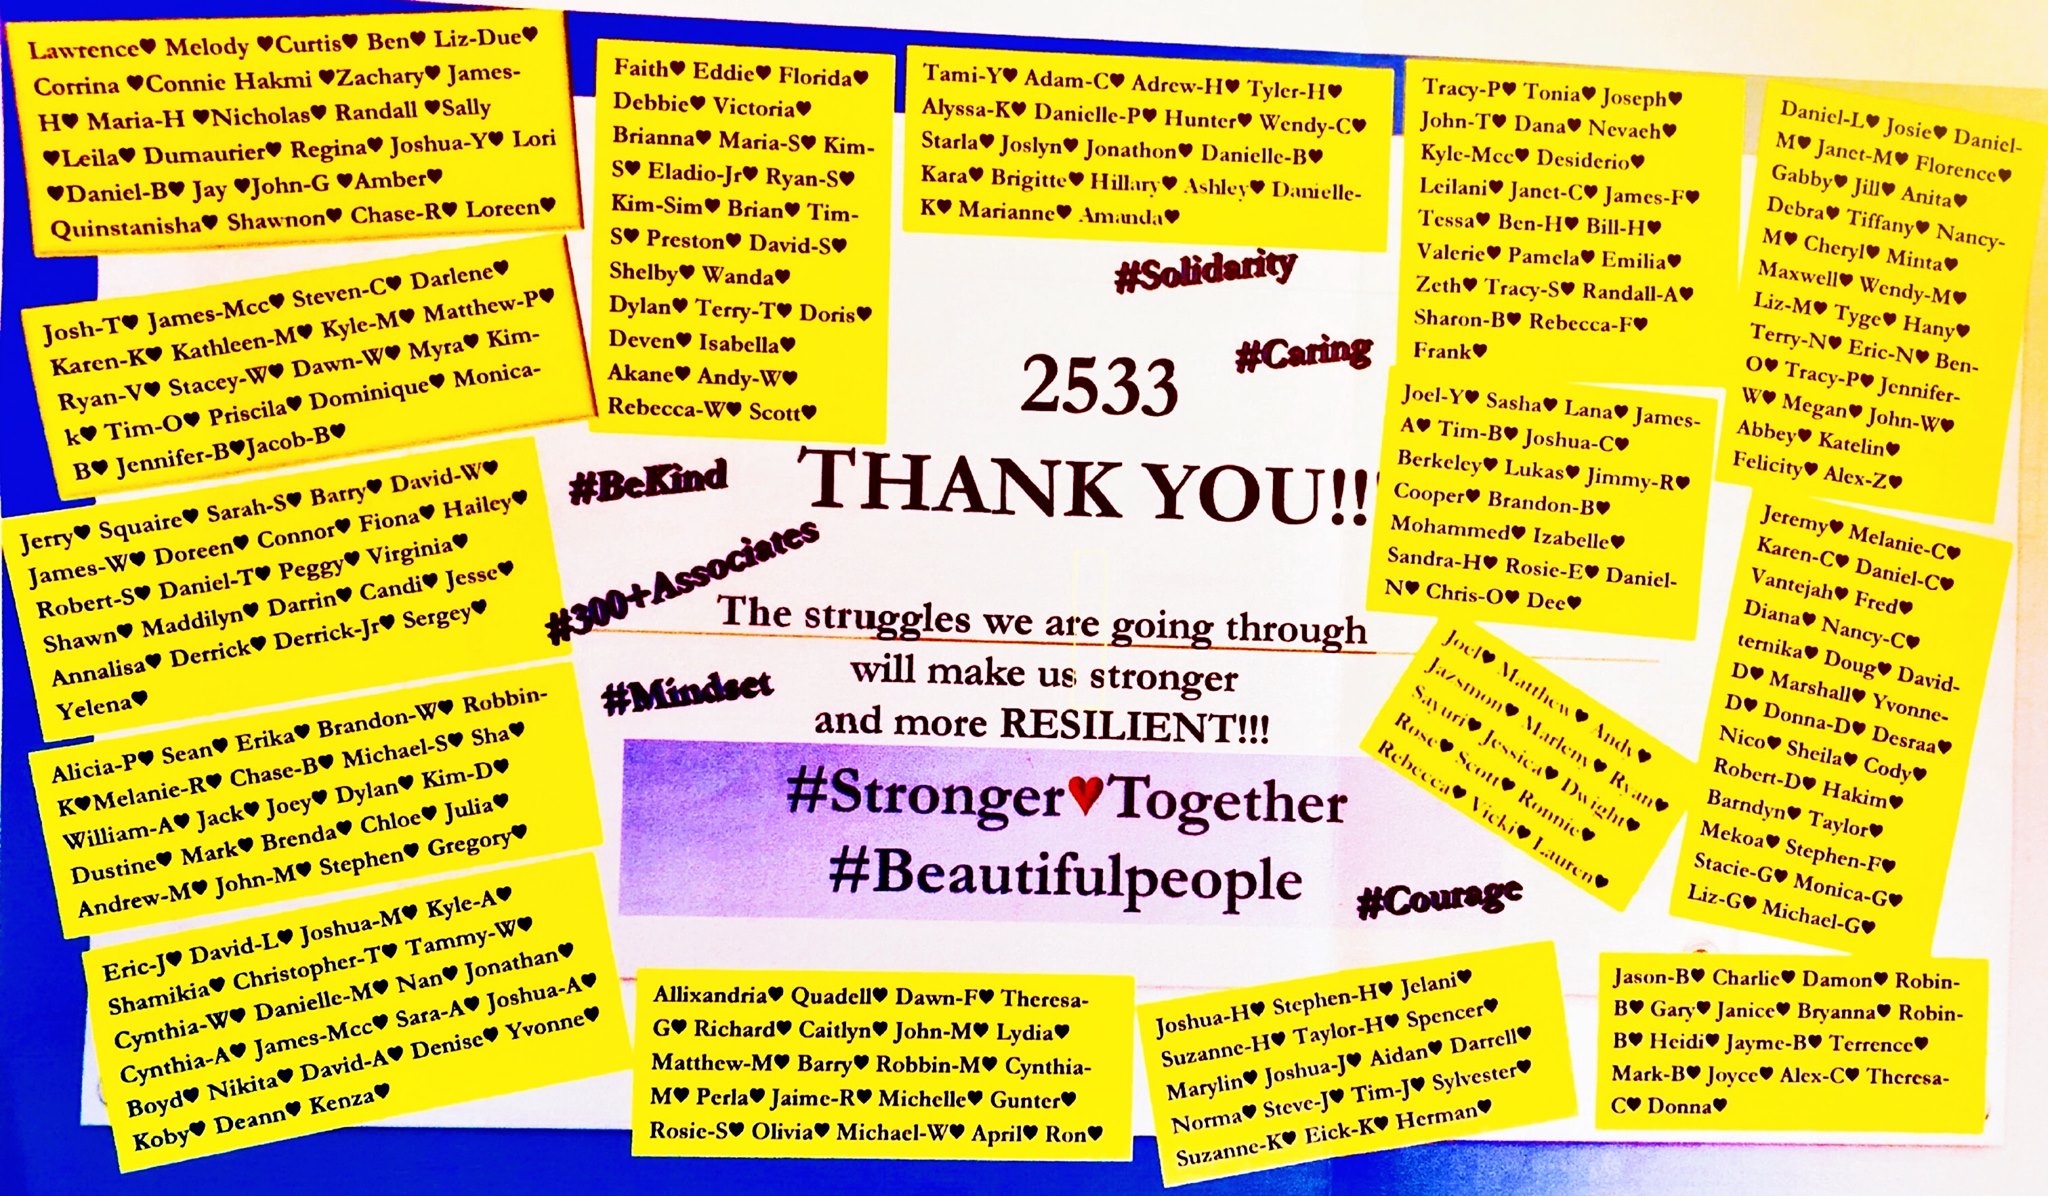 Lawrence♥ Melody ♥Curtis♥ Ben♥ Liz-Due♥
Corrina ♥Connie Hakmi ♥Zachary♥ James-
H♥ Maria-H ♥Nicholas♥ Randall ♥Sally
♥Leila♥ Dumaurier♥ Regina♥ Joshua-Y♥ Lori
♥Daniel-B♥ Jay ♥John-G ♥Amber♥
Quinstanisha♥ Shawnon♥ Chase-R♥ Loreen♥
Josh-T♥ James-Mcc♥ Steven-C♥ Darlene♥
Karen-K♥ Kathleen-M♥ Kyle-M♥ Matthew-P♥
Ryan-V♥ Stacey-W♥ Dawn-W♥ Myra♥ Kim-
k♥ Tim-O♥ Priscila♥ Dominique♥ Monica-
B♥ Jennifer-B♥Jacob-B♥
Jerry♥ Squaire♥ Sarah-S♥ Barry♥ David-W♥
James-W♥ Doreen♥ Connor♥ Fiona♥ Hailey♥
Robert-S♥ Daniel-T♥ Peggy♥ Virginia♥
Shawn♥ Maddilyn♥ Darrin♥ Candi♥ Jesse♥
Annalisa♥ Derrick♥ Derrick-Jr♥ Sergey♥
Yelena♥
Alicia-P♥ Sean♥ Erika♥ Brandon-W♥ Robbin-
K♥Melanie-R♥ Chase-B♥ Michael-S♥ Sha♥
William-A♥ Jack♥ Joey♥ Dylan♥ Kim-D♥
Dustine♥ Mark♥ Brenda♥ Chloe♥ Julia♥
Andrew-M♥ John-M♥ Stephen♥ Gregory♥
Eric-J♥ David-L♥ Joshua-M♥ Kyle-A♥
Shamikia♥ Christopher-T♥ Tammy-W♥
Cynthia-W♥ Danielle-M♥ Nan♥ Jonathan♥
Cynthia-A♥ James-Mcc♥ Sara-A♥ Joshua-A♥
Boyd♥ Nikita♥ David-A♥ Denise♥ Yvonne♥
Koby♥ Deann♥ Kenza♥
Faith♥ Eddie♥ Florida♥
Debbie♥ Victoria♥
Brianna♥ Maria-S♥ Kim-
S♥ Eladio-Jr♥ Ryan-S♥
Kim-Sim♥ Brian♥ Tim-
S♥ Preston♥ David-S♥
Shelby♥ Wanda♥
Dylan♥ Terry-T♥ Doris♥
Deven♥ Isabella♥
Akane♥ Andy-W♥
Rebecca-W♥ Scott♥
Tami-Y♥ Adam-C♥ Adrew-H♥ Tyler-H♥
Alyssa-K♥ Danielle-P♥ Hunter♥ Wendy-C♥
Starla♥ Joslyn♥ Jonathon♥ Danielle-B♥
Kara♥ Brigitte♥ Hillary♥ Ashley♥ Danielle-
K♥ Marianne♥ Amanda♥
#Solidarity
#Caring
2533
THANK YOU!!!
#BeKind
#300+Associates
#Mindset
The struggles we are going through
will make us stronger
and more RESILIENT!!!
#Stronger♥Together
#Beautifulpeople
#Courage
Tracy-P♥ Tonia♥ Joseph♥
John-T♥ Dana♥ Nevaeh♥
Kyle-Mcc♥ Desiderio♥
Leilani♥ Janet-C♥ James-F♥
Tessa♥ Ben-H♥ Bill-H♥
Valerie♥ Pamela♥ Emilia♥
Zeth♥ Tracy-S♥ Randall-A♥
Sharon-B♥ Rebecca-F♥
Frank♥
Daniel-L♥ Josie♥ Daniel-
M♥ Janet-M♥ Florence♥
Gabby♥ Jill♥ Anita♥
Debra♥ Tiffany♥ Nancy-
M♥ Cheryl♥ Minta♥
Maxwell♥ Wendy-M♥
Liz-M♥ Tyge♥ Hany♥
Terry-N♥ Eric-N♥ Ben-
O♥ Tracy-P♥ Jennifer-
W♥ Megan♥ John-W♥
Abbey♥ Katelin♥
Felicity♥ Alex-Z♥
Joel-Y♥ Sasha♥ Lana♥ James-
A♥ Tim-B♥ Joshua-C♥
Berkeley♥ Lukas♥ Jimmy-R♥
Cooper♥ Brandon-B♥
Mohammed♥ Izabelle♥
Sandra-H♥ Rosie-E♥ Daniel-
N♥ Chris-O♥ Dee♥
Jeremy♥ Melanie-C♥
Karen-C♥ Daniel-C♥
Vantejah♥ Fred♥
Diana♥ Nancy-C♥
ternika♥ Doug♥ David-
D♥ Marshall♥ Yvonne-
D♥ Donna-D♥ Desraa♥
Nico♥ Sheila♥ Cody♥
Robert-D♥ Hakim♥
Barndyn♥ Taylor♥
Mekoa♥ Stephen-F♥
Stacie-G♥ Monica-G♥
Liz-G♥ Michael-G♥
Joel♥ Matthew ♥ Andy♥
Jazsmon♥ Marleny♥ Ryan♥
Sayuri♥ Jessica♥ Dwight♥
Rose♥ Scott♥ Ronnie♥
Rebecca♥ Vicki♥ Lauren♥
Allixandria♥ Quadell♥ Dawn-F♥ Theresa-
G♥ Richard♥ Caitlyn♥ John-M♥ Lydia♥
Matthew-M♥ Barry♥ Robbin-M♥ Cynthia-
M♥ Perla♥ Jaime-R♥ Michelle♥ Gunter♥
Rosie-S♥ Olivia♥ Michael-W♥ April♥ Ron♥
Joshua-H♥ Stephen-H♥ Jelani♥
Suzanne-H♥ Taylor-H♥ Spencer♥
Marylin♥ Joshua-J♥ Aidan♥ Darrell♥
Norma♥ Steve-J♥ Tim-J♥ Sylvester♥
Suzanne-K♥ Eick-K♥ Herman♥
Jason-B♥ Charlie♥ Damon♥ Robin-
B♥ Gary♥ Janice♥ Bryanna♥ Robin-
B♥ Heidi♥ Jayme-B♥ Terrence♥
Mark-B♥ Joyce♥ Alex-C♥ Theresa-
C♥ Donna♥